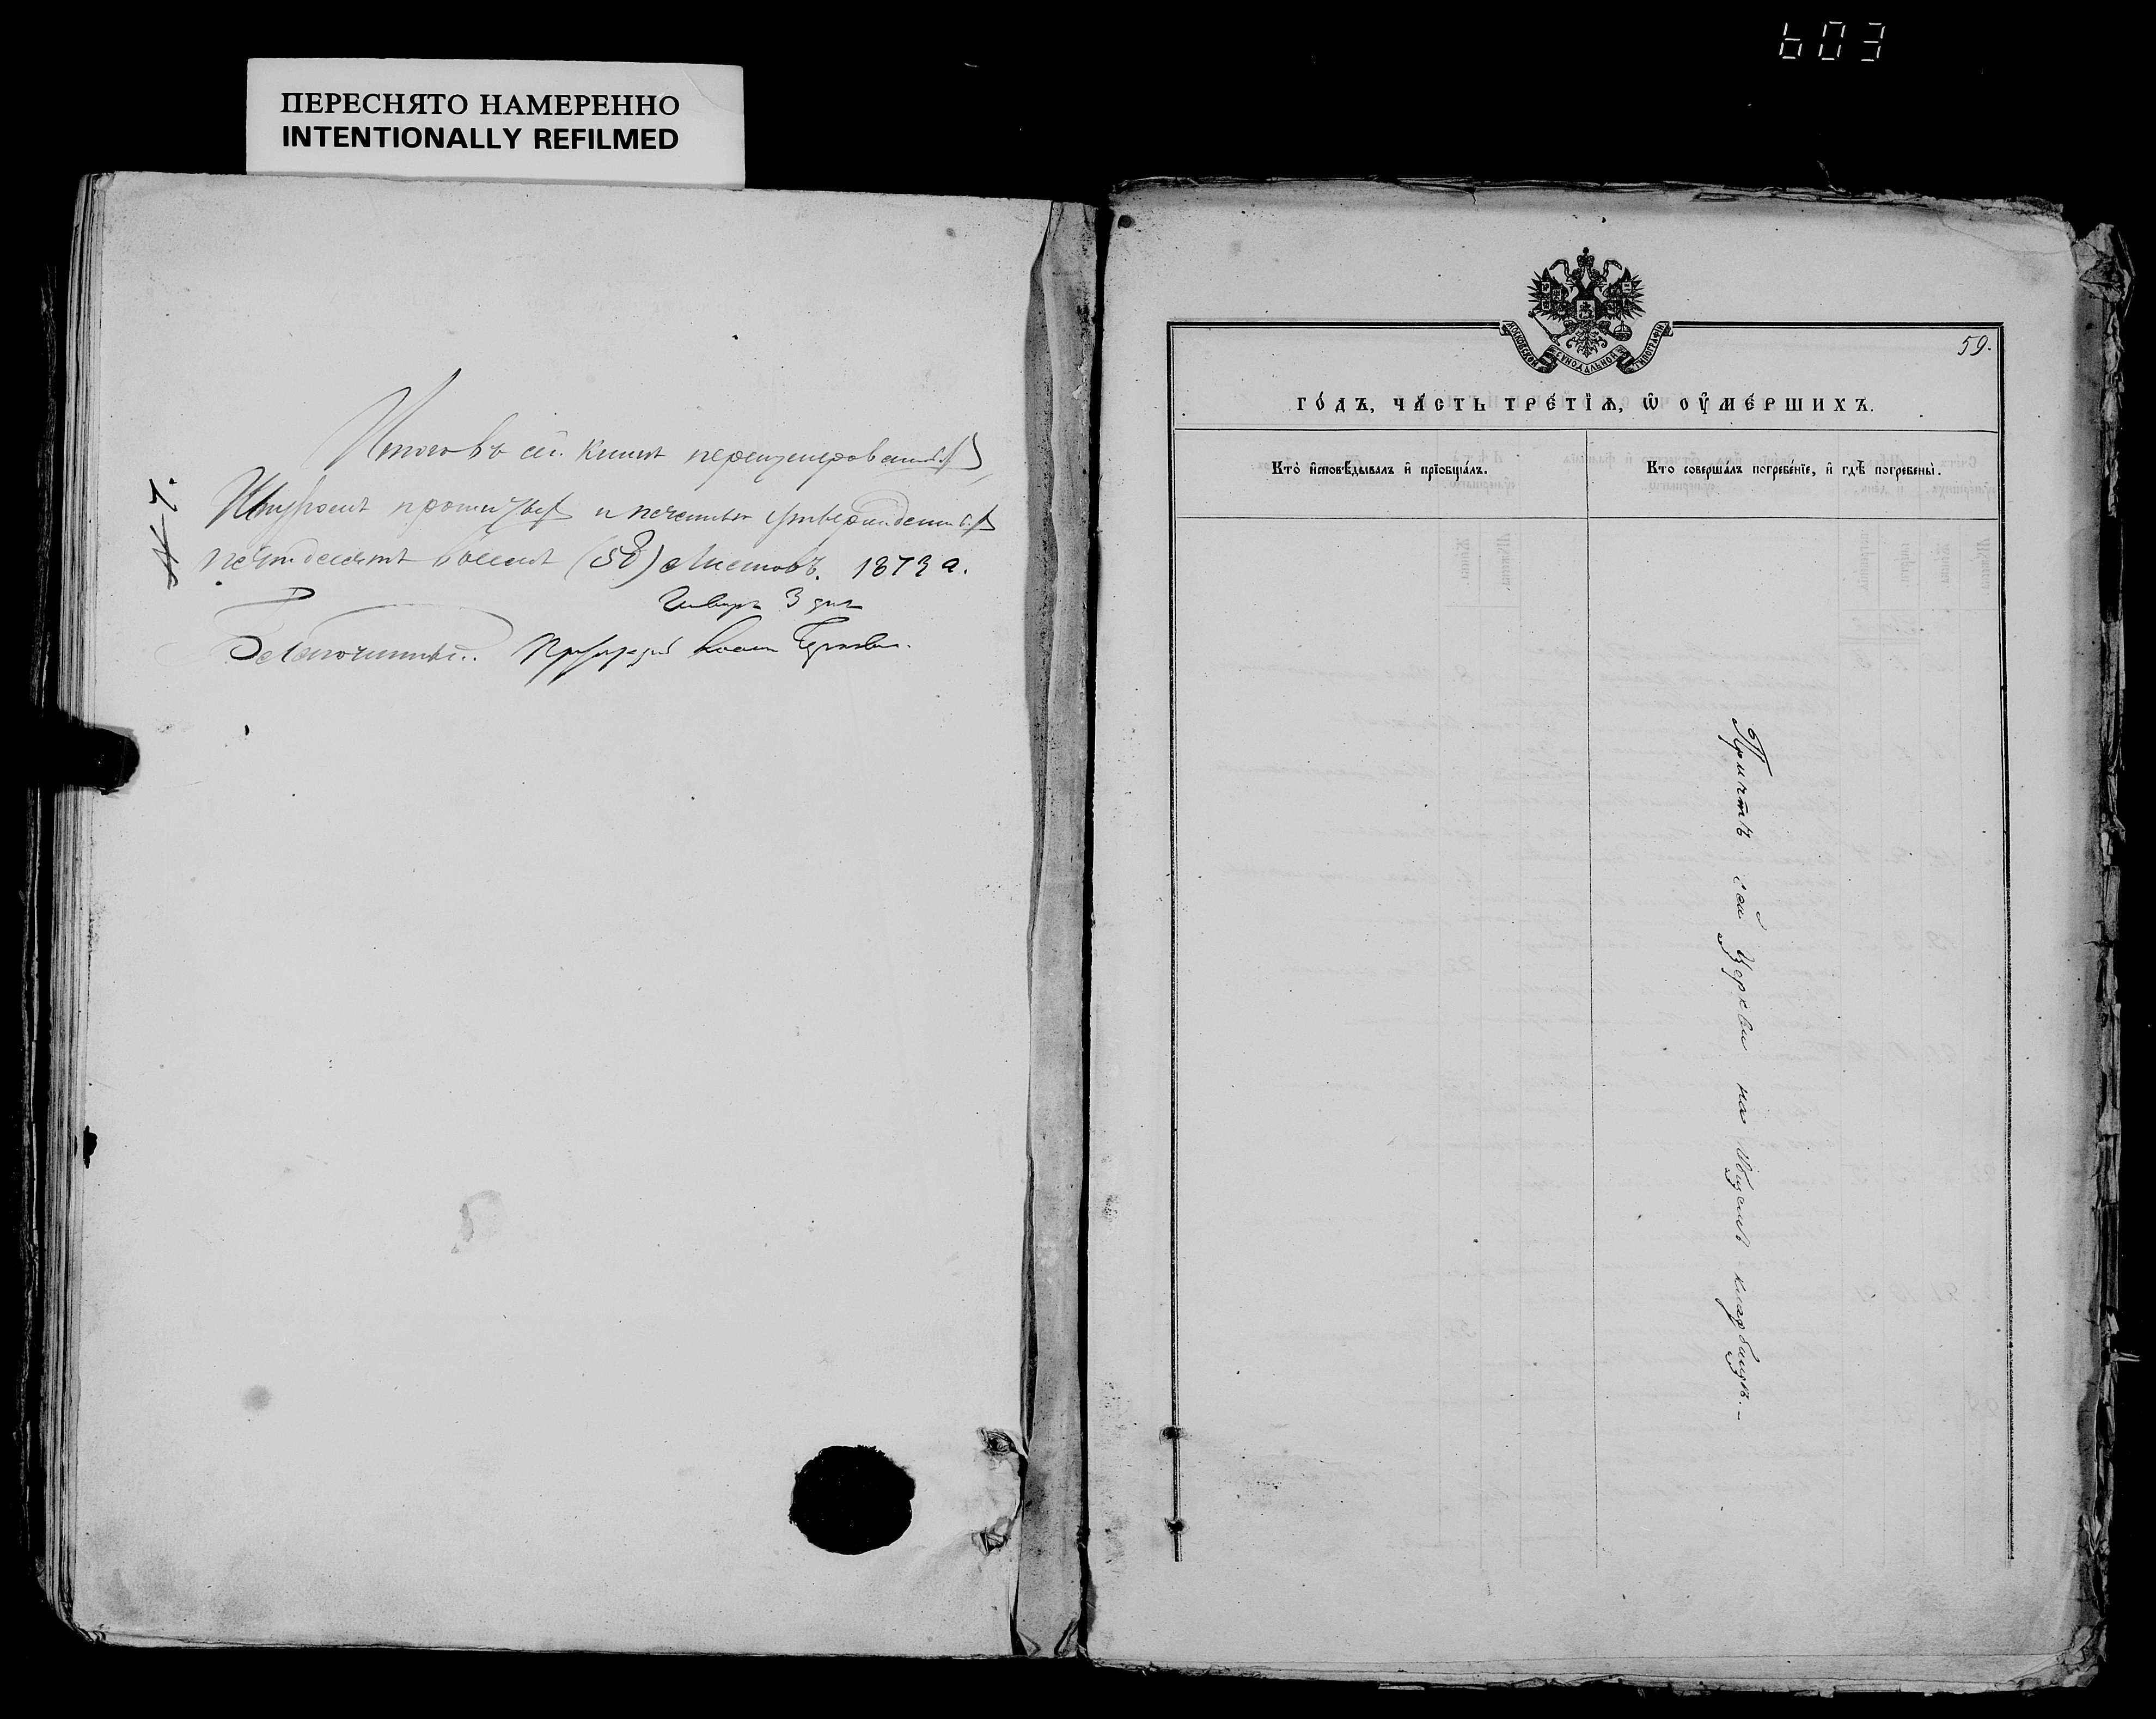 603
ПЕРЕСНЯТО НАМЕРЕННО
INTENTIONALLY REFILMED
Итого въ сей книгѣ перенумерованныхъ,
Шнуромъ и печатью утвержденныхъ
пятьдесятъ восемь (58) Листовъ. 1873 г.
3 дня
Благочинный
МОСКОВСКОЙ СѴНОДАЛЬНОЙ ТИПОГРАФІИ
59.
го́дъ, ча́сть тре́тїѧ, ѡ҆ ᲂу҆ме́ршихъ.
Кто̀ и҆сповѣ́дывалъ и҆ прїобща́лъ.
Кто соверша́лъ погребе́нїе, и҆ гдѣ̀ погребены̀.
Причтъ сей Церкви на Общемъ кладбищѣ.–